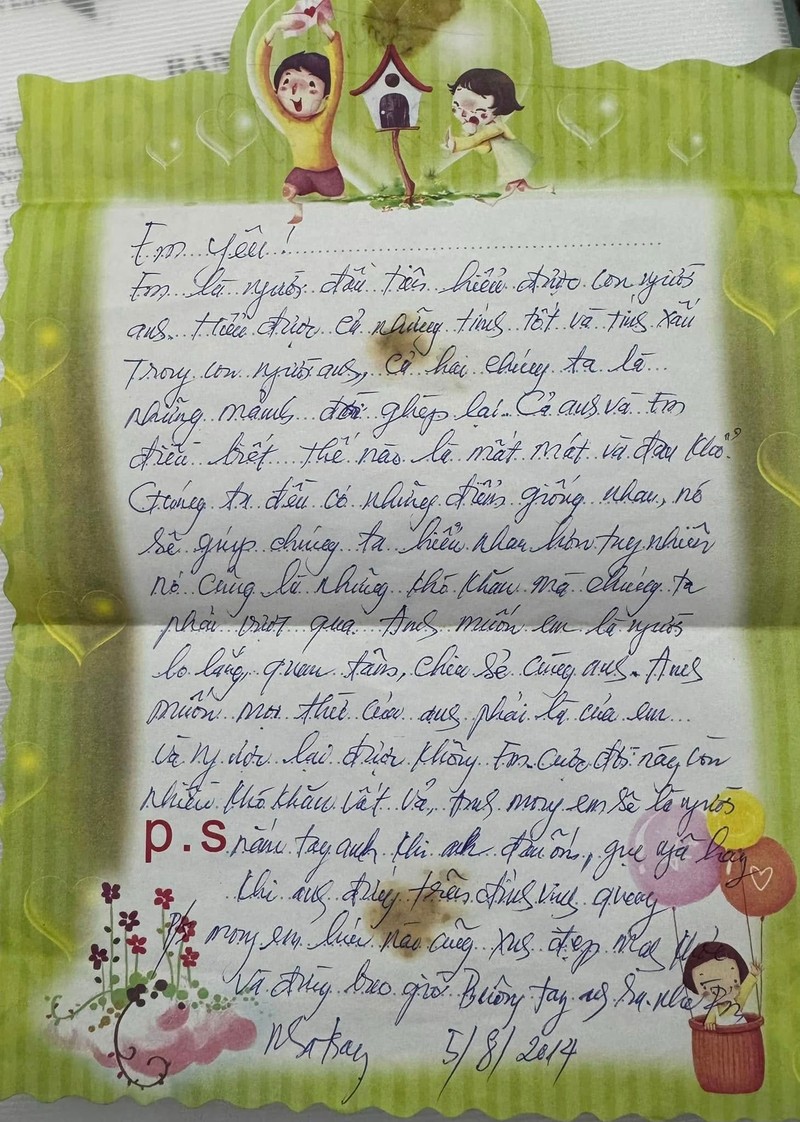 BẢN
Em yêu!
Em là người đầu tiên hiểu được con người
anh. Hiểu được cả những tính tốt và tính xấu
Trong con người anh, cả hai chúng ta là
những mảnh đời ghép lại. Cả anh và Em
điều biết thế nào là mất mát và đau khổ.
Chúng ta đều có những điểm giống nhau, nó
sẽ giúp chúng ta hiểu nhau hơn tuy nhiên
nó cũng là những khó khăn mà chúng ta
phải vượt qua. Anh muốn em là người
lo lắng, quan tâm, chia sẻ cùng anh. Anh
muốn mọi thứ của anh phải là của em
và ngược lại được không Em. Cuộc đời này còn
nhiều khó khăn vất vả, Anh mong em sẽ là người
p.s nắm tay anh khi anh đau ốm, gục ngã hay
khi anh đứng trên đỉnh vinh quang
P/s mong em lúc nào cũng xinh đẹp mạnh khỏe
và đừng bao giờ Buông tay anh ra nhé Em
5/8/2014